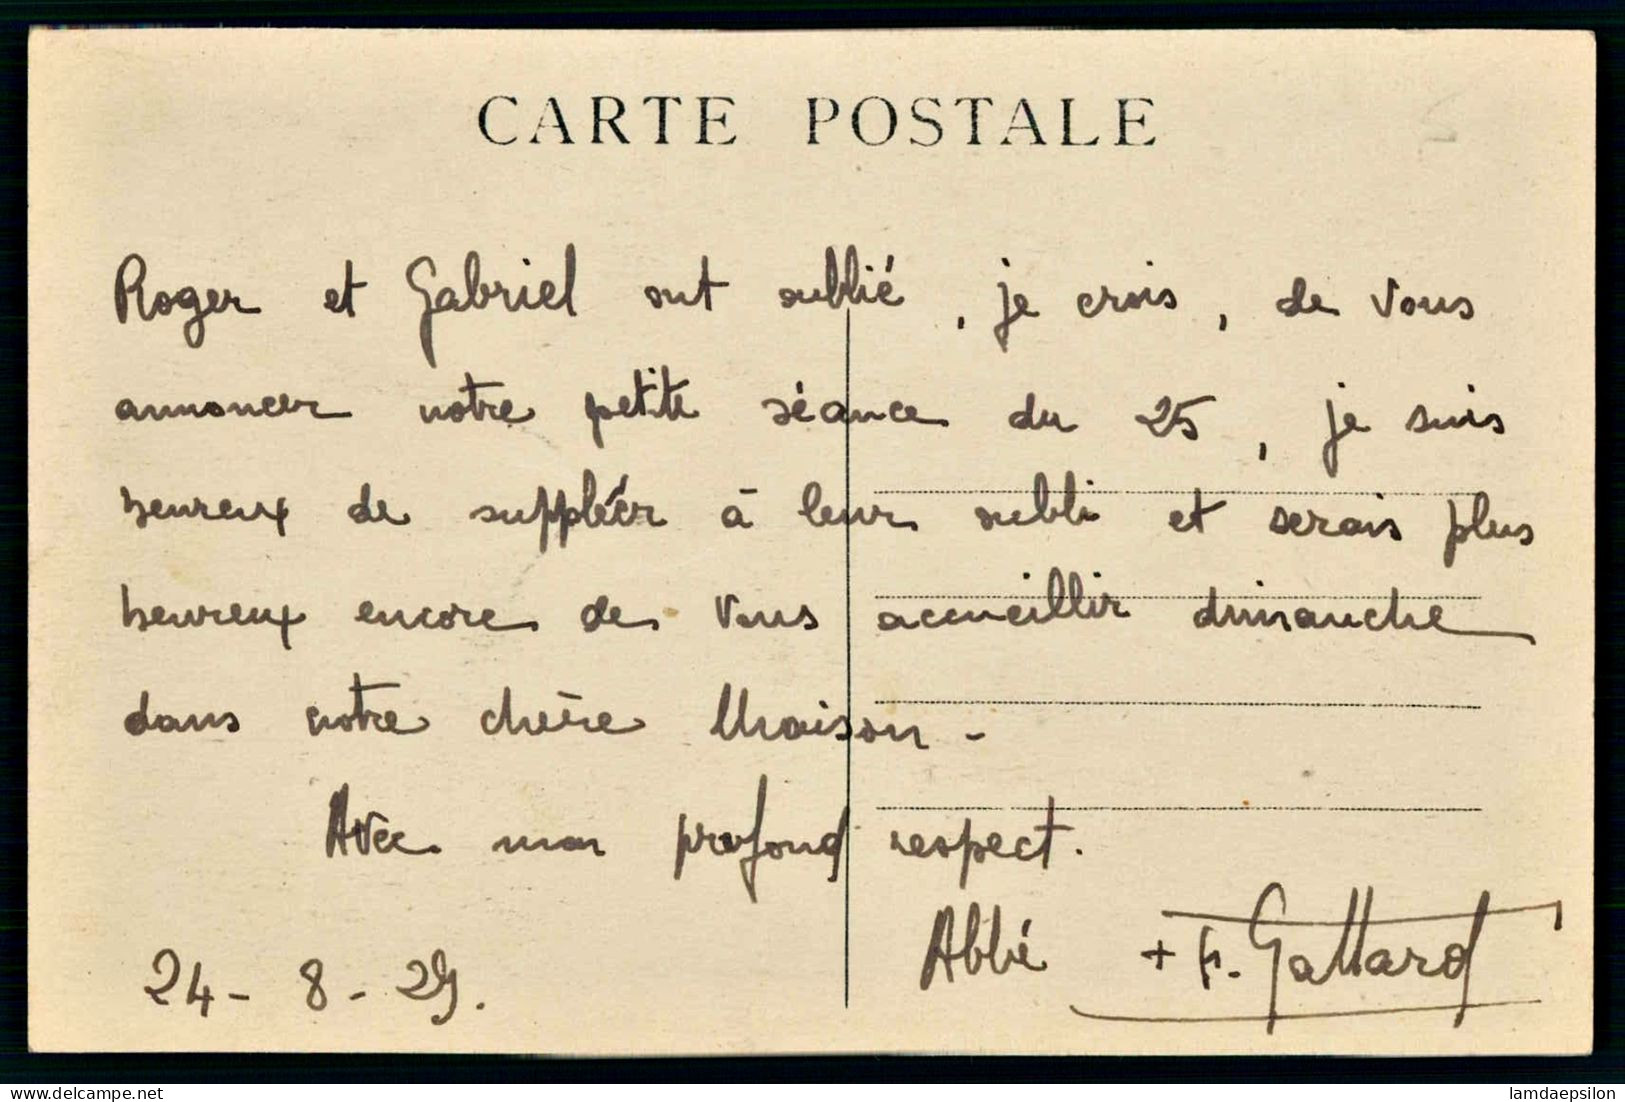 CARTE POSTALE
Roger et Gabriel ont oublié, je crois, de vous
annoncer notre petite séance du 25, je suis
heureux de suppléer à leur oubli et serais plus
heureux encore de vous accueillir dimanche
dans notre chère Maison -
Avec mon profond respect.
Abbé + F. Gallard
24 - 8 - 29.
delcampe.net
lamdaepsilon